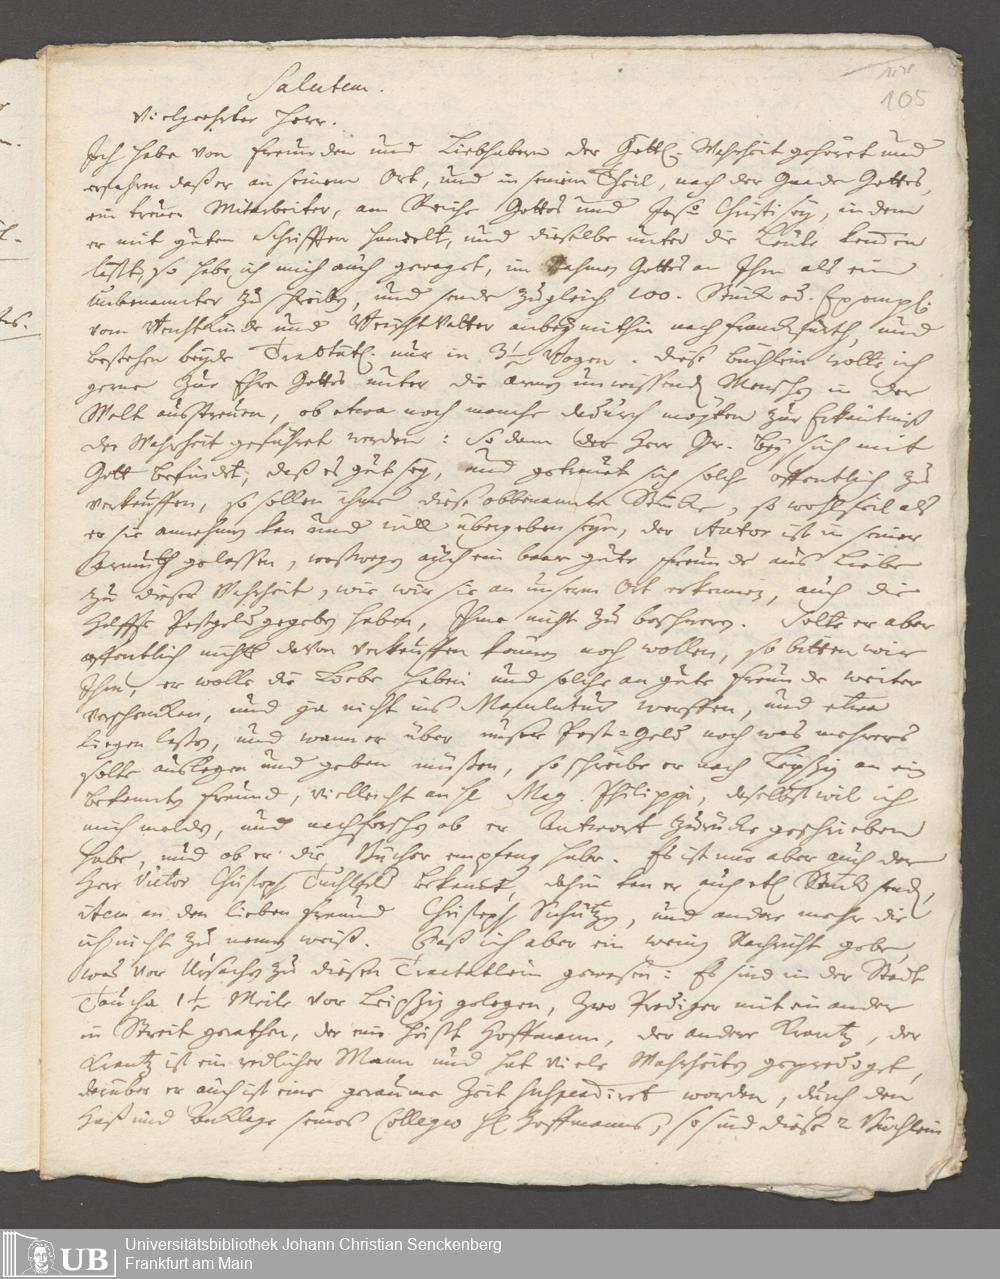 105
Salutem.
Vielgeehrter Herr.
Ich habe von Freunden und Liebhabern der Göttl. Wahrheit gehöret und
erfahren daß er an seinem Ort, und in seinem Theil, nach der Gnade Gottes,
ein treuer Mitarbeiter, am Reiche Gottes und Jesu Christi sey, indem
er mit guten Schrifften handelt, und dieselbe unter die Leute
läßt, so habe ich mich auch gewaget, im Nahmen Gottes an Ihm als ein
Unbenannter zu schreiben, und sende zugleich 100. Stück od. Exempl.
vom und anbey mithin nach Franckfurth, und
bestehen beyde Tractätl. nur in 3½ Bogen. Diese Büchlein wolte ich
gerne zur Ehre Gottes unter die armen unwissend Menschen in der
Welt ausstreuen, ob etwa noch manche dadurch möchten zur Erkäntniß
der Wahrheit geführet werden: So dann der Herr Gr. bey sich mit
Gott befindet, daß es gut sey, und getrauet sich solche öffentlich zu
verkauffen, so sollen ihme diese obbenannte Stücke, so wohlfeil als
er sie annehmen kan und will übergeben seyn, der Autor ist in seiner
Armuth gelassen, weßwegen auch ein paar gute Freunde aus Liebe
zu dieser Wahrheit, wie wir sie an unserm Ort erkennen, auch die
Helffte Postgeld gegeben haben, Ihme nicht zu beschweren. Solte er aber
öffentlich nichts davon verkauffen können noch wollen, so bitten wir
Ihm, er wolle die Liebe haben und solche an gute Freunde weiter
verschencken, und ja nicht ins Maculatur werffen, und etwa
liegen lassen, und wann er über unser Post-Geld noch was mehrers
solte auslegen und geben müssen, so schreibe er nach Leipzig an ein
bekannten Freund, vielleicht an H. Mag. Philippi, daselbst wil ich
mich melden, und nachforschen ob er Antwort zurücke geschrieben
habe, und ob er die Bücher empfang habe. Es ist mir aber auch der
Herr Victor Christoph Tuchtfeld bekannt, dahin kan er auch etl. Stück send,
item an den lieben Freund Christoph Schütz, und andere mehr die
ich nicht zu nennen weiß. Daß ich aber ein wenig Nachricht gebe,
was vor Ursachen zu diesen Tractätlein gewesen: Es sind in der Stadt
Taucha 1½ Meile von Leipzig gelegen, zwo Prediger mit ein ander
in Streit gerathen, der eine heist Hoffmann, der andere Krantz, der
Krantz ist ein redlicher Mann und hat viele Wahrheiten gepredigt,
darüber er auch ist eine geraume Zeit suspendiret worden, durch den
Haß und Anklage seines Collegen H. Hoffmanns, so sind diese 2 Büchlein
UB
Universitätsbibliothek Johann Christian Senckenberg
Frankfurt am Main